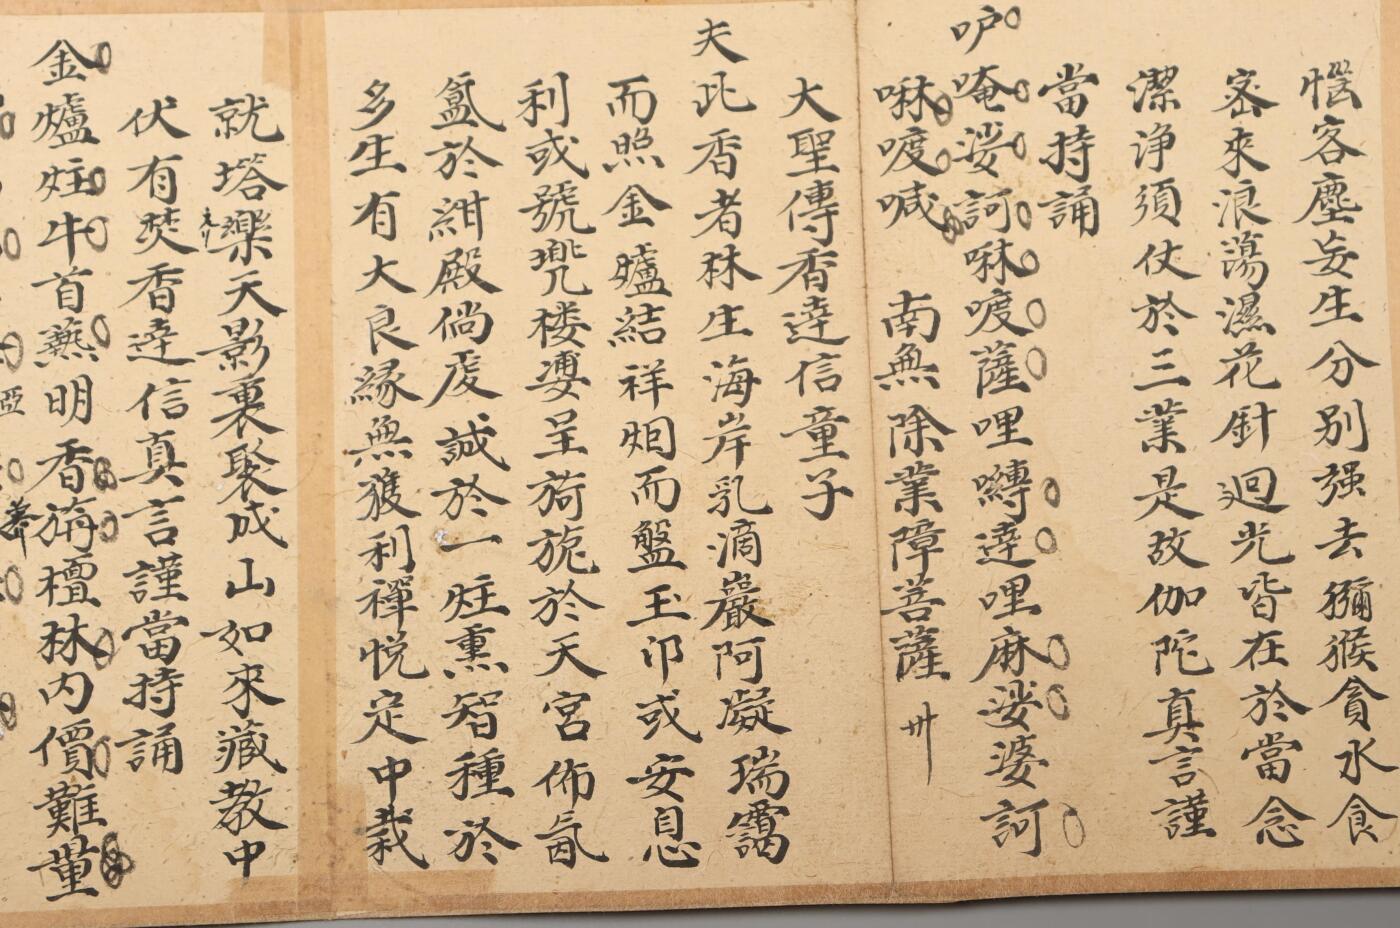 惱客塵妄生分别强去獼猴貪水食
蜜來浪蕩濕花針迴光皆在於當念
潔浄須仗於三業是故伽陀真言謹
當持誦
吣唵娑訶啉㗀薩哩嚩達哩麻娑婆訶
啉㗀喊 南無除業障菩薩 卅
大聖傳香達信童子
夫此香者林生海岸乳滴巖阿凝瑞靄
而照金爐結祥烟而盤玉卬或安息
利或號兠楼婆呈荷旎於天宮佈氤
氳於紺殿倘虔誠於一炷熏智種於
多生有大良縁無獲利禪悦定中栽
就塔樂天影裏聚成山如來藏教中
伏有焚香達信真言謹當持誦
金爐炷牛首爇明香旃檀林内價難量